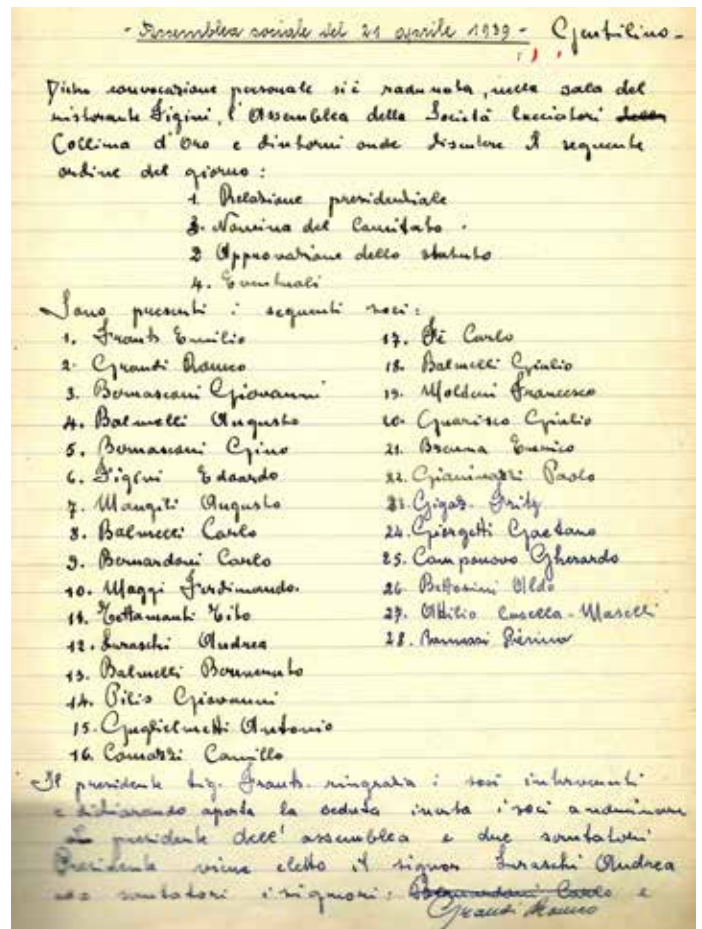 - Assemblea sociale del 21 aprile 1939 - Gentilino -
Dietro convocazione personale si è radunata, nella sala del
ristorante Figini, l'Assemblea della Società Cacciatori della
Collina d'Oro e dintorni onde discutere il seguente
ordine del giorno :
1. Relazione presidentiale
3. Nomina del Comitato .
2 Approvazione dello statuto
4. Eventuali
Sono presenti i seguenti soci :
1. Frantz Emilio
2. Grandi Romeo
3. Bernasconi Giovanni
4. Balmelli Augusto
5. Bernasconi Gino
6. Figini Edoardo
7. Mangili Augusto
8. Balmelli Carlo
9. Bernardoni Carlo
10. Maggi Ferdinando.
11. Tettamanti Tito
12. Luraschi Andrea
13. Balmelli Benvenuto
14. Pilis Giovanni
15. Guglielmetti Antonio
16. Comazzi Camillo
17. Fè Carlo
18. Balmelli Giulio
19. Moldeni Francesco
20. Guarisco Giulio
21. Enrico
22. Gianinazzi Paolo
23. Gigax Fritz
24. Giorgetti Gaetano
25. Camponovo Gherardo
26 Bettosini Aldo
27. Attilio Casella - Maselli
28. Pierino
Il presidente Sig. Frantz. ringrazia i soci intervenuti
e dichiarando aperta la seduta invita i soci a nominare
un presidente dell' assemblea e due scrutatori
Presidente viene eletto il signor Luraschi Andrea
scrutatori i signori : Bernardoni Carlo e
Grandi Romeo